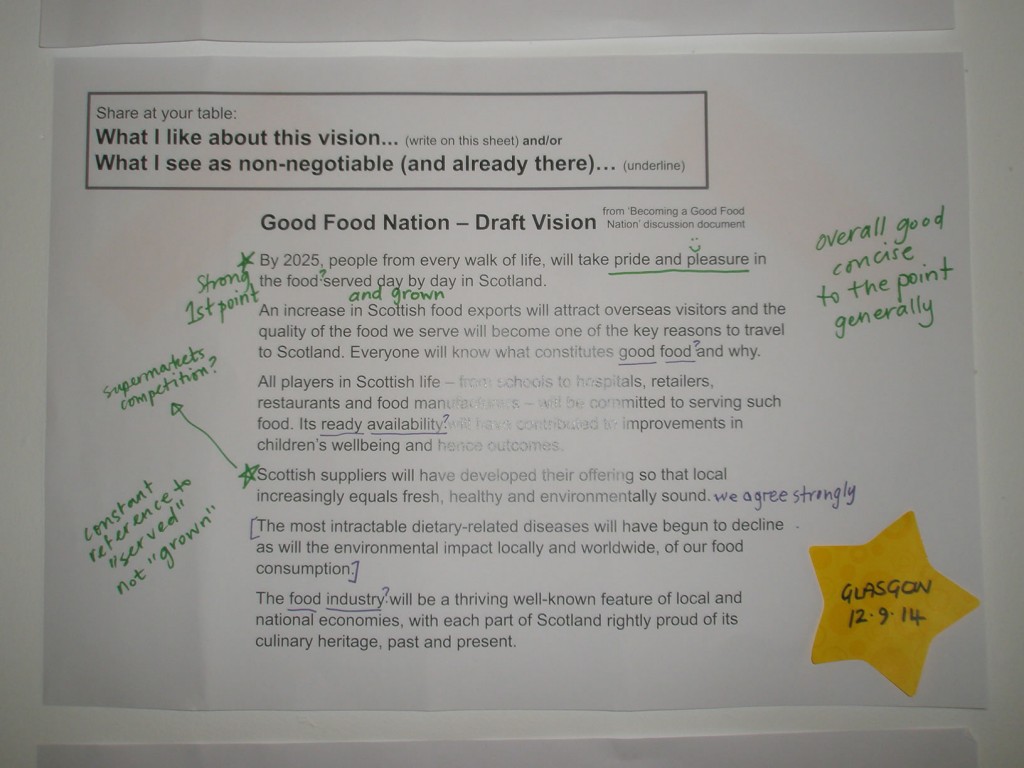 Share at your table:
What I like about this vision... (write on this sheet) and/or
What I see as non-negotiable (and already there)... (underline)
Good Food Nation – Draft Vision
from 'Becoming a Good Food
Nation' discussion document
overall good
concise
to the point
generally
Strong
1st point
By 2025, people from every walk of life, will take pride and pleasure in
the food ? served day by day in Scotland.
and grown
An increase in Scottish food exports will attract overseas visitors and the
quality of the food we serve will become one of the key reasons to travel
to Scotland. Everyone will know what constitutes good food ? and why.
supermarkets
competition?
All players in Scottish life – from schools to hospitals, retailers,
restaurants and food manufacturers – will be committed to serving such
food. Its ready availability ? will have contributed to improvements in
children's wellbeing and hence outcomes.
Scottish suppliers will have developed their offering so that local
increasingly equals fresh, healthy and environmentally sound. we agree strongly
constant
reference to
"served"
not "grown"
[The most intractable dietary-related diseases will have begun to decline
as will the environmental impact locally and worldwide, of our food
consumption.]
The food industry ? will be a thriving well-known feature of local and
national economies, with each part of Scotland rightly proud of its
culinary heritage, past and present.
GLASGOW
12.9.14